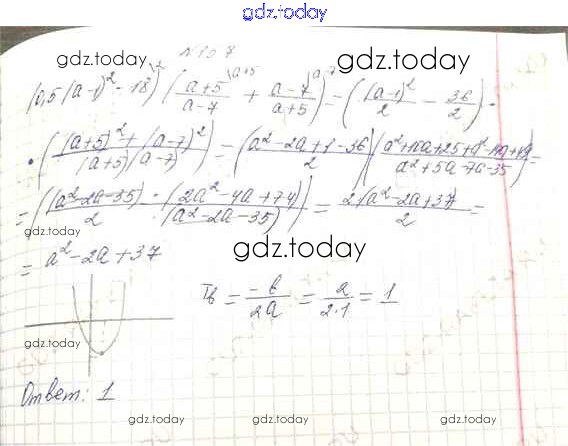 gdz.today
№ 10.7
gdz.today gdz.today
(0,5(a-1)² - 18) ((a+5)/(a-7) + (a-7)/(a+5)) = ((a-1)²/2 - 36/2) ·
· (((a+5)² + (a-7)²)/((a+5)(a-7))) = ((a²-2a+1-36)/2) ((a²+10a+25+a²-14a+49)/(a²+5a-7a-35)) =
= ((a²-2a-35)/2 · (2a²-4a+74)/(a²-2a-35)) = 2(a²-2a+37)/2 =
gdz.today gdz.today
= a²-2a+37
xв = -b/2a = 2/2·1 = 1
Ответ: 1
gdz.today gdz.today gdz.today